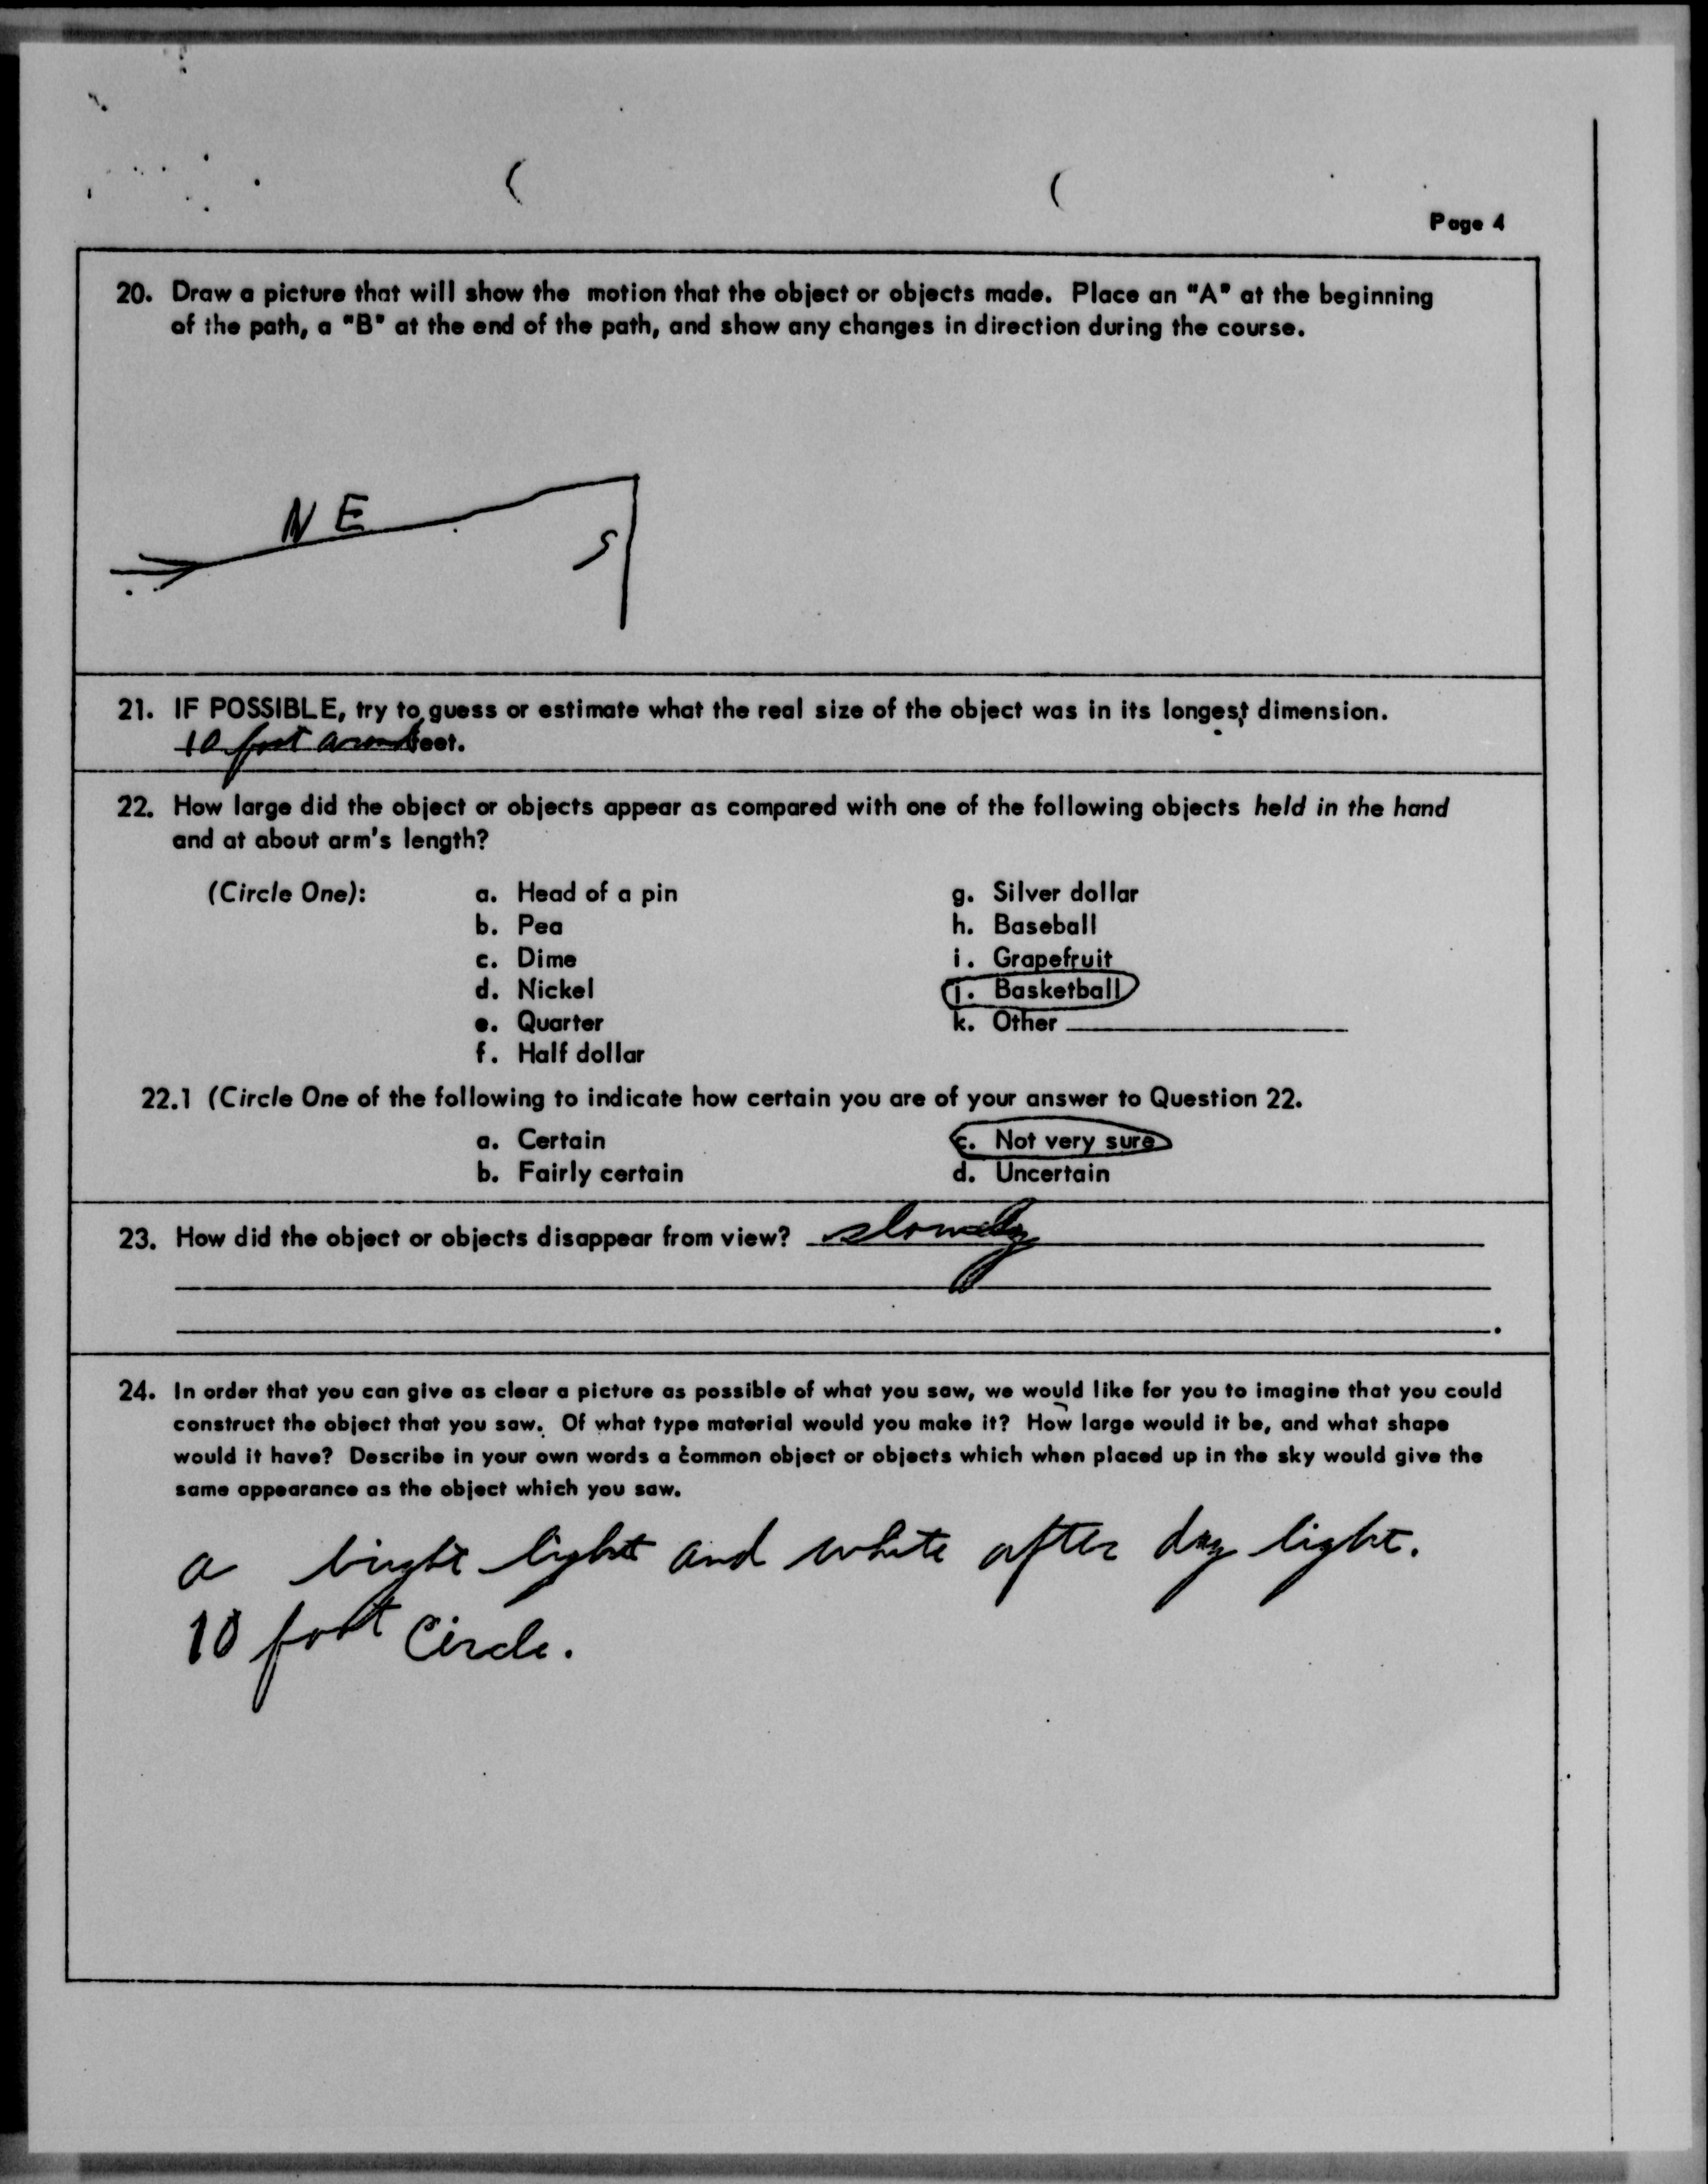 Page 4
20. Draw a picture that will show the motion that the object or objects made. Place an "A" at the beginning
of the path, a "B" at the end of the path, and show any changes in direction during the course.
N E
S
21. IF POSSIBLE, try to guess or estimate what the real size of the object was in its longest dimension.
10 foot around feet.
22. How large did the object or objects appear as compared with one of the following objects held in the hand
and at about arm's length?
(Circle One): a. Head of a pin g. Silver dollar
b. Pea h. Baseball
c. Dime i. Grapefruit
d. Nickel j. Basketball
e. Quarter k. Other
f. Half dollar
22.1 (Circle One of the following to indicate how certain you are of your answer to Question 22.
a. Certain c. Not very sure
b. Fairly certain d. Uncertain
23. How did the object or objects disappear from view? slowly
24. In order that you can give as clear a picture as possible of what you saw, we would like for you to imagine that you could
construct the object that you saw. Of what type material would you make it? How large would it be, and what shape
would it have? Describe in your own words a common object or objects which when placed up in the sky would give the
same appearance as the object which you saw.
a bright light and white after day light.
10 foot Circle.